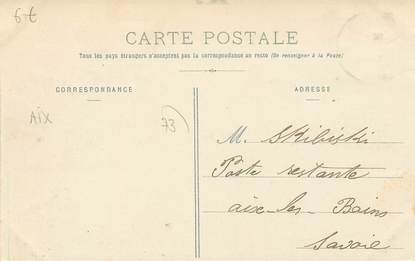 6€
CARTE POSTALE
Tous les pays étrangers n'acceptent pas la correspondance au recto (Se renseigner à la Poste)
CORRESPONDANCE
ADRESSE
AIX
73
M. Skibiski
Poste restante
aix-les-Bains
Savoie